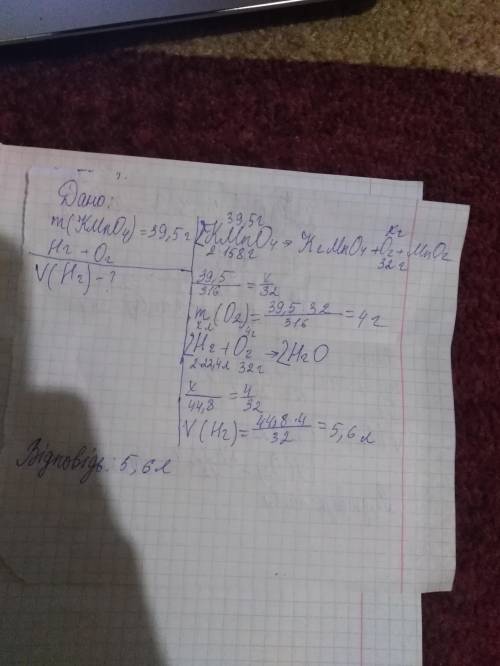 Дано:
m(KMnO4)=39,5г
H2 + O2
V(H2) - ?
39,5г xг
2KMnO4 → K2MnO4 + O2 + MnO2
2·158г 32г
39,5/316 = x/32
m(O2) = 39,5·32/316 = 4г
x л 4г
2H2 + O2 → 2H2O
2·22,4л 32г
x/44,8 = 4/32
V(H2) = 44,8·4/32 = 5,6л
Відповідь: 5,6л